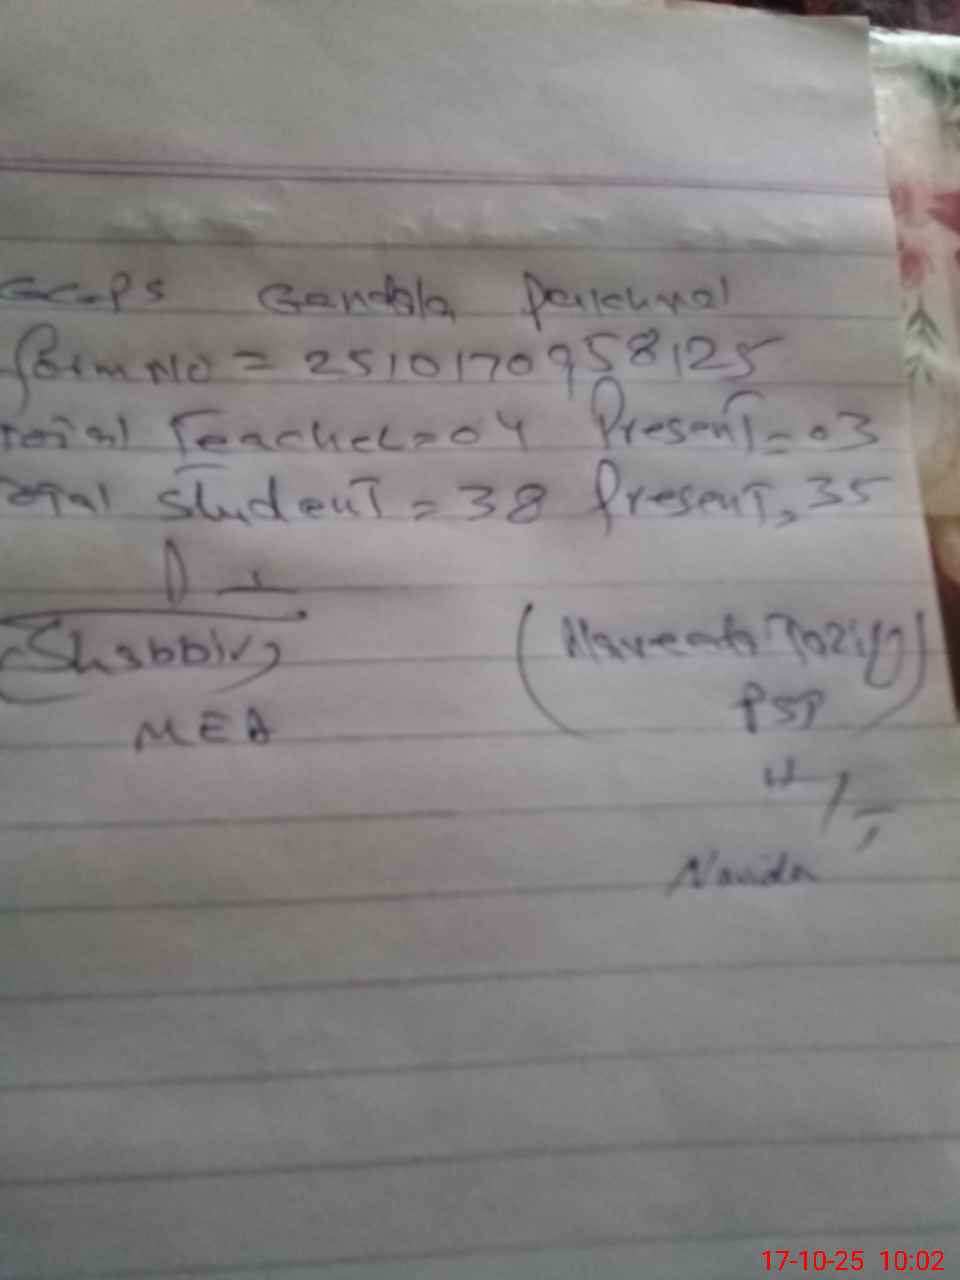 GGPS Gandola
Form No = 2510170958125
Total Teacher = 04 Present = 03
Total Student = 38 Present, 35
(Shabbir)
MEA
PSP
Navida
17-10-25 10:02